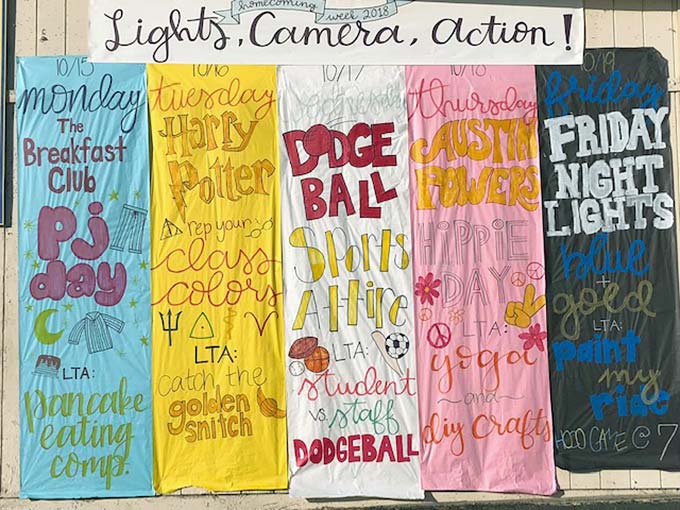 homecoming
week 2018
Lights, Camera, Action!
10/15
monday
The
Breakfast
Club
PJ
day
LTA:
Pancake
eating
comp.
10/16
tuesday
Harry
Potter
rep your
class
colors
LTA:
catch the
golden
snitch
10/17
wednesday
DODGE
BALL
Sports
Attire
LTA:
student
vs. staff
DODGEBALL
10/18
thursday
AUSTIN
POWERS
HiPPiE
DAY
LTA:
yoga
and
diy crafts
10/19
friday
FRIDAY
NIGHT
LIGHTS
blue
+
gold
LTA:
paint
my
HOCO GAME @ 7